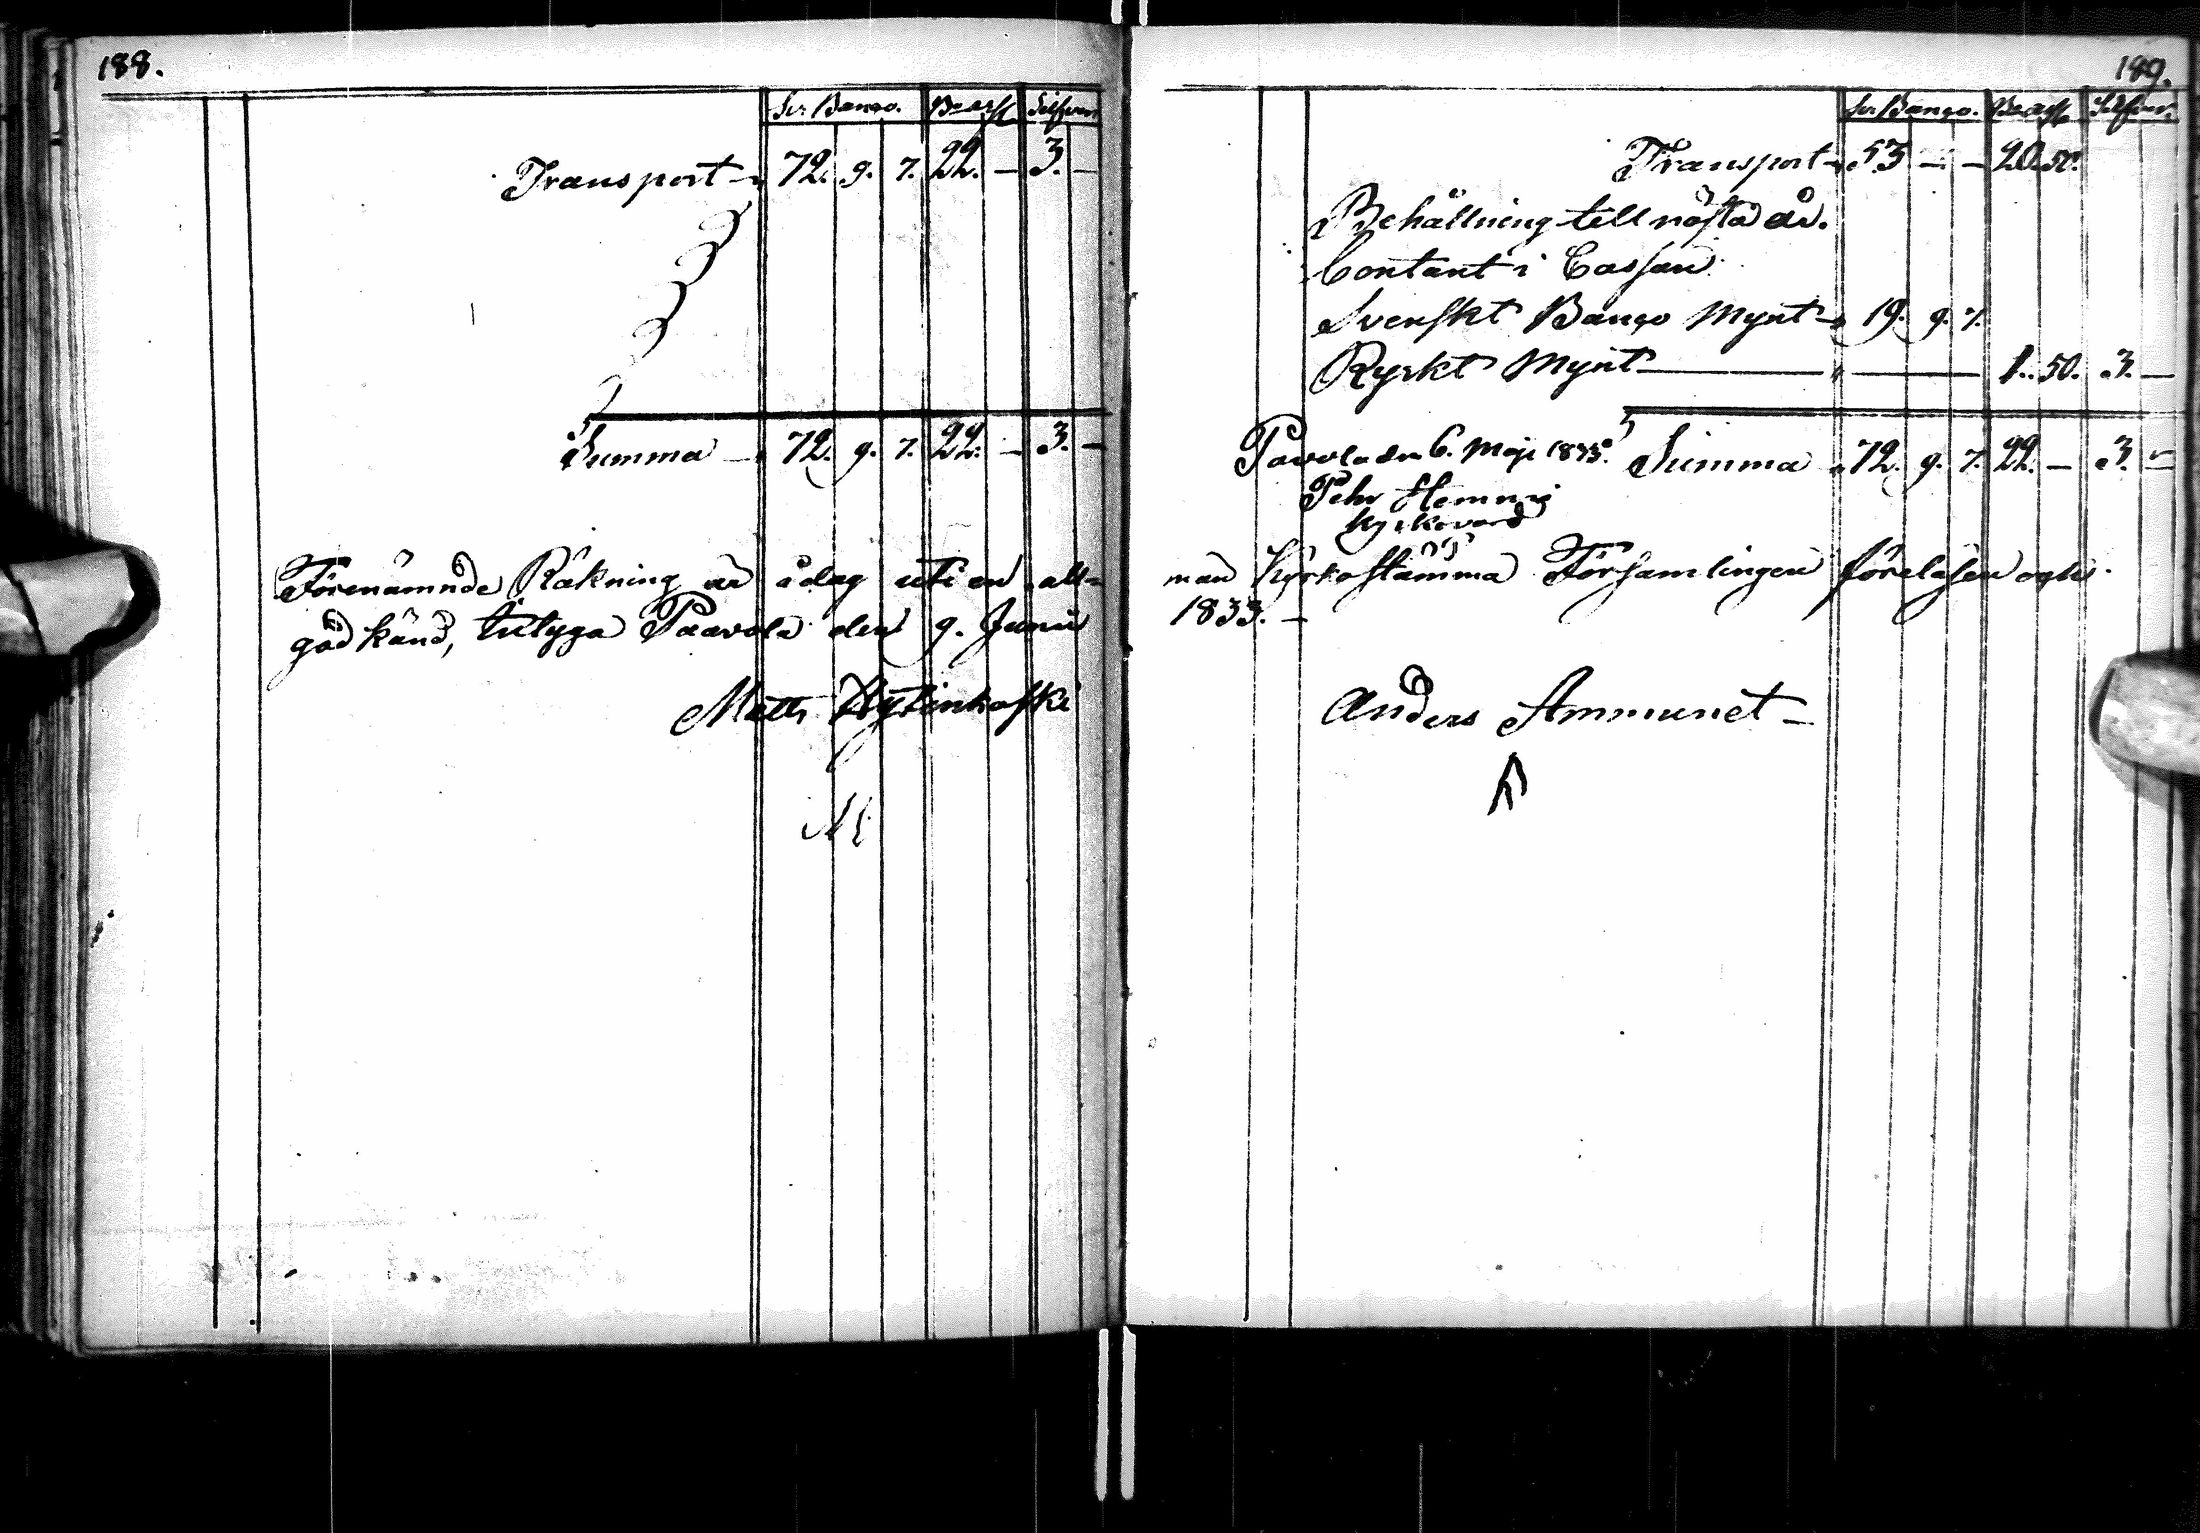 188.
Sv. Banco. B: ass. Silfver
Transport 72. 9. 7. 22. — 3. —
Summa 72. 9. 7. 22. — 3. —
Förenämnde Räkning är i dag uti en all-
god känd, intyga Paavola den 9. Junii
Matts
M
189.
Sv. Banco. B: ass. Silfver.
Transport 53 — — 20. 50.
Behållning till nästa år.
Contant i Cassan
Svenskt Banco Mynt 19. 9. 7.
Ryskt Mynt — — 1. 50. 3. —
Pavola den 6. Maji 1833. Summa 72. 9. 7. 22. — 3. —
Pehr Hemmi
kyrkovärd
män Kyrkostämma Församlingen föreläsen och
1833. —
Anders Ammunet